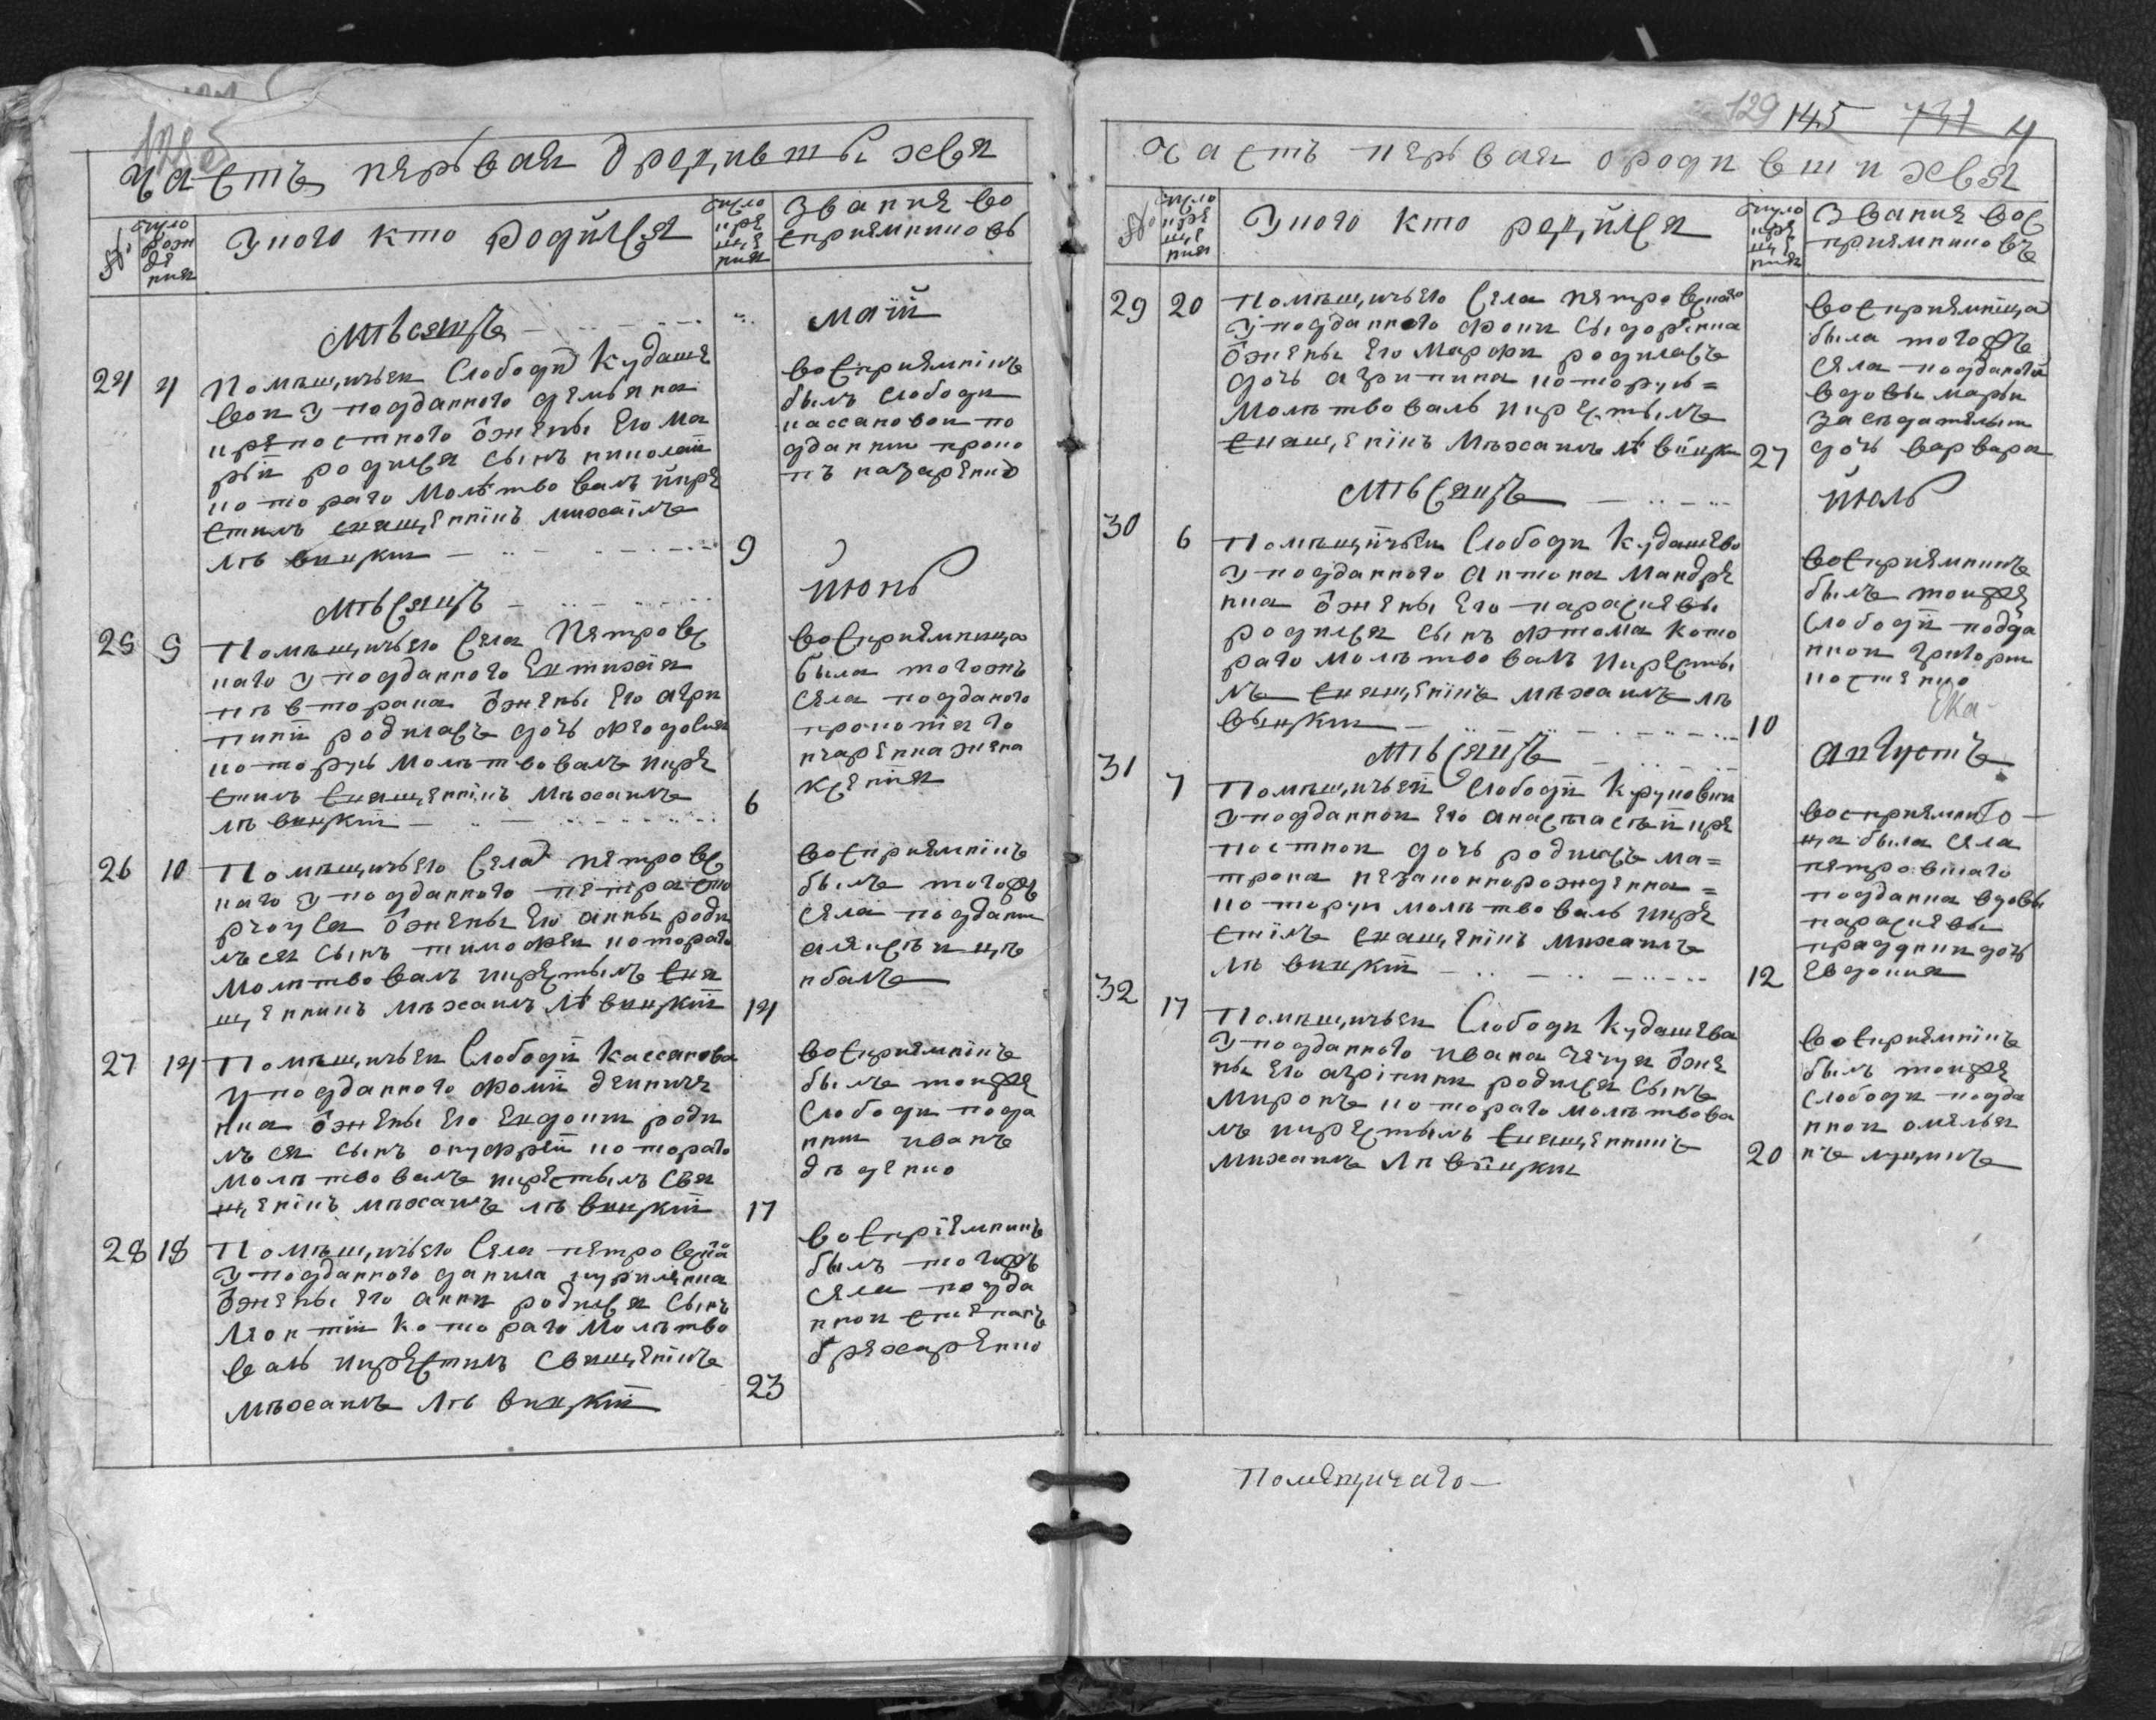 128об
Часть первая о родившыхся
№
число рождения
У кого кто родился
число крещения
Звания восприемниковъ
Месяцъ
май
24 4
Помещичьей Слободи Кудаше
вой у подданного демьяна
крепостного и жены его Ма
рьи родился сынъ николай
которого Молитвовалъ и кре
стилъ священникъ михаилъ
левицкий
9
восприемникъ
былъ слободи
кассановой по
данний проко
пъ назаренко
Месяцъ
июнь
25 5
Помещичьего Села Петровс
каго у подданного Евтихия
и жены его агри
пини родилась дочь Феодосия
которую молитвовалъ и кре
стилъ священникъ михаилъ
левицкий
6
восприемница
была тогожъ
села подданого
прокопия го
нчаренка жена
ксения
26 10
Помещичьего Села петровс
каго у подданного петра сто
и жены его анны роди
лъся сынъ тимофей которого
молитвовалъ и крестылъ свя
щенникъ михаилъ левицкий
14
восприемникъ
былъ тогожъ
села подданий
27 14
Помещичьей Слободи Кассанова
у подданного Фоми дейниче
нка и жены его Евдокии роди
лъся сынъ онуфрей которого
молитвовалъ и крестылъ свя
щеникъ михаилъ левицкий
17
восприемникъ
былъ тойже
слободи подда
нний иванъ
диденко
28 18
Помещичьего Села петровска
у подданного данила куриленка
и жены его анни родился сынъ
Леонтий которого Молитво
валъ и крестилъ священикъ
михаилъ левицкий
23
восприемникъ
былъ тогожъ
села подда
нной степанъ
бречаренко
129 145 731 4
Часть первая о родившихся
№
число крещения
У кого кто родился
число крещения
Звания восприемниковъ
29 20
Помещичьего Села петровскаго
у подданного Фоки Сыдоренка
и жены его Марфи родилась
дочь агрипина которую
Молитвовалъ и крестылъ
священикъ михаилъ левицки
27
восприемница
была тогожъ
села подданой
вдовы марьи
заседателый
дочь варвара
Месяцъ
июль
30 6
Помещичьей Слободи Кудашево
у подданного антона Мандре
нка и жены его параскевы
родился сынъ Фтома кото
раго молитвовалъ и кресты
лъ священикъ михаилъ ле
выцкий
10
восприемникъ
былъ тойже
слободи подда
нной григорий
костенко
Ека-
Месяцъ
августъ
31 7
Помещичьей слободи Крутовки
у подданной его анастасии кре
постной дочь родилась ма=
трона незаконнорожденна=
которую молитвовалъ и кре
стилъ священикъ михаилъ
левицкий
12
восприемни
ца была села
петровскаго
подданна вдовы
параскевы
дочь
Евдокия
32 17
Помещичьей Слободи Кудашева
у подданного ивана чечуя и же
ны его агрипини родился сынъ
Миронъ которого молитвова
лъ и крестылъ священникъ
михаилъ левицкий
20
восприемникъ
былъ тойже
слободи подда
нной омелья
нъ
Помещичаго-